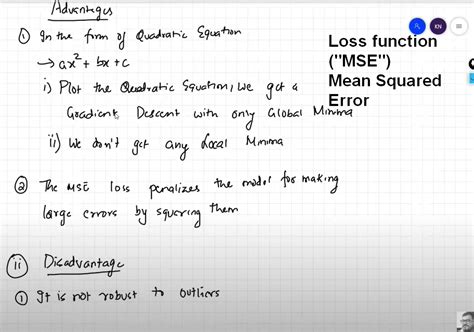 Advantages
① In the form of Quadratic Equation
→ ax² + bx + c
i) Plot the Quadratic Equation, we get a
Gradient Descent with only Global Minima
ii) We don't get any Local Minima
② The MSE loss penalizes the model for making
large errors by squaring them
ii Disadvantage
① It is not robust to outliers
KN
Loss function
("MSE")
Mean Squared
Error